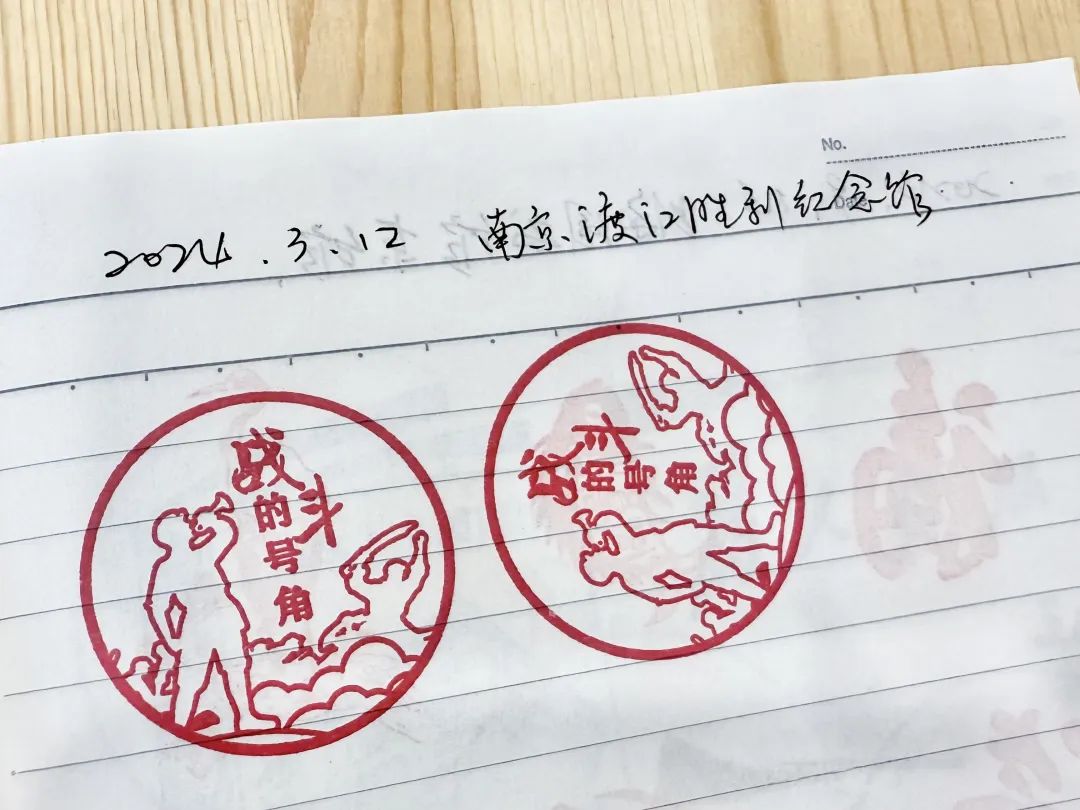 No.
2024.3.12 南京渡江胜利纪念馆
战斗
的号角
战斗
的号角